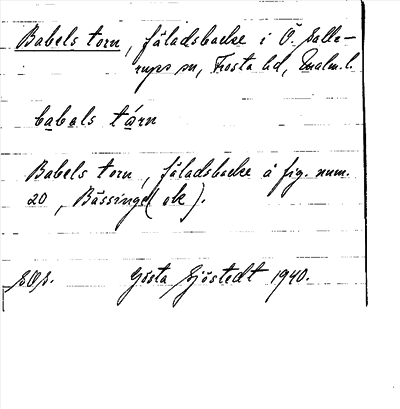 Babels torn, fäladsbacke i Ö. Salle-
rups sn, Frosta hd, Malm. l.
babəls tårn
Babels torn, fäladsbacke å fig. num.
20, Bässinge( ok).
Gösta Sjöstedt 1940.